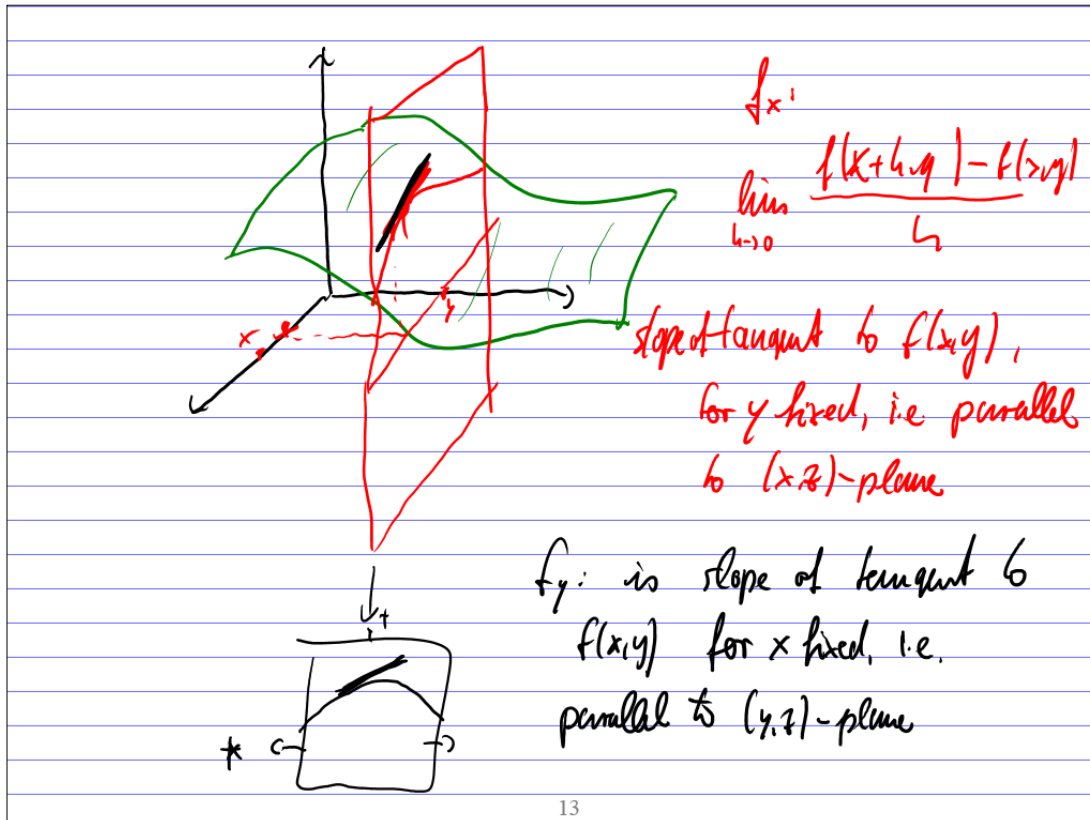 fx:
lim f(x+h,y) - f(x,y)
h→0 h
slope of tangent to f(x,y),
for y fixed, i.e. parallel
to (x,z)-plane
x
y
fy: is slope of tangent to
f(x,y) for x fixed, i.e.
parallel to (y,z)-plane
13